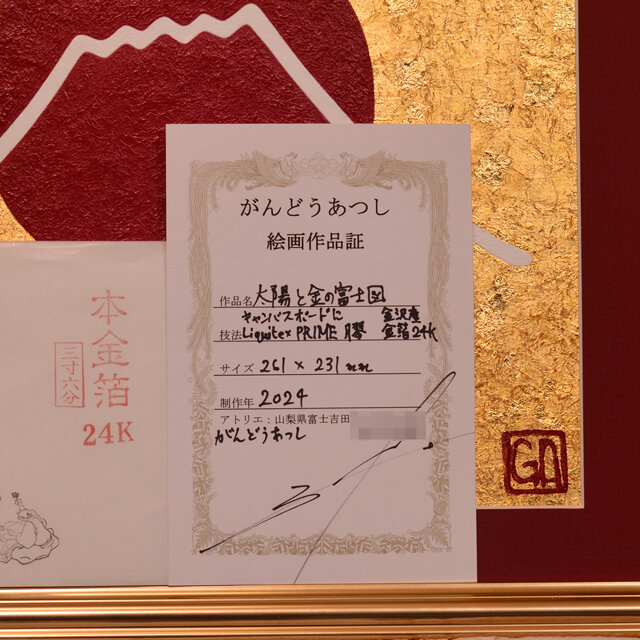 がんどうあつし
絵画作品証
作品名 太陽と金の富士図
キャンバスボードに 金沢産
技法 Liquitex PRIME 膠 金箔24K
サイズ 261 × 231 mm
制作年 2024
アトリエ：山梨県富士吉田
がんどうあつし
本金箔
三寸六分
24K
GA